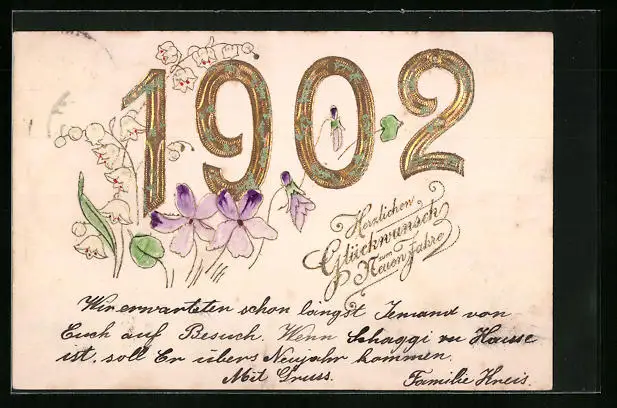 1902
Herzlichen
Glückwunsch
zum
Neuen Jahre
Wir erwarteten schon längst Jemand von
Euch auf Besuch. Wenn Schaggi zu Hause
ist, soll Er übers Neujahr kommen.
Mit Gruss. Familie Kreis.